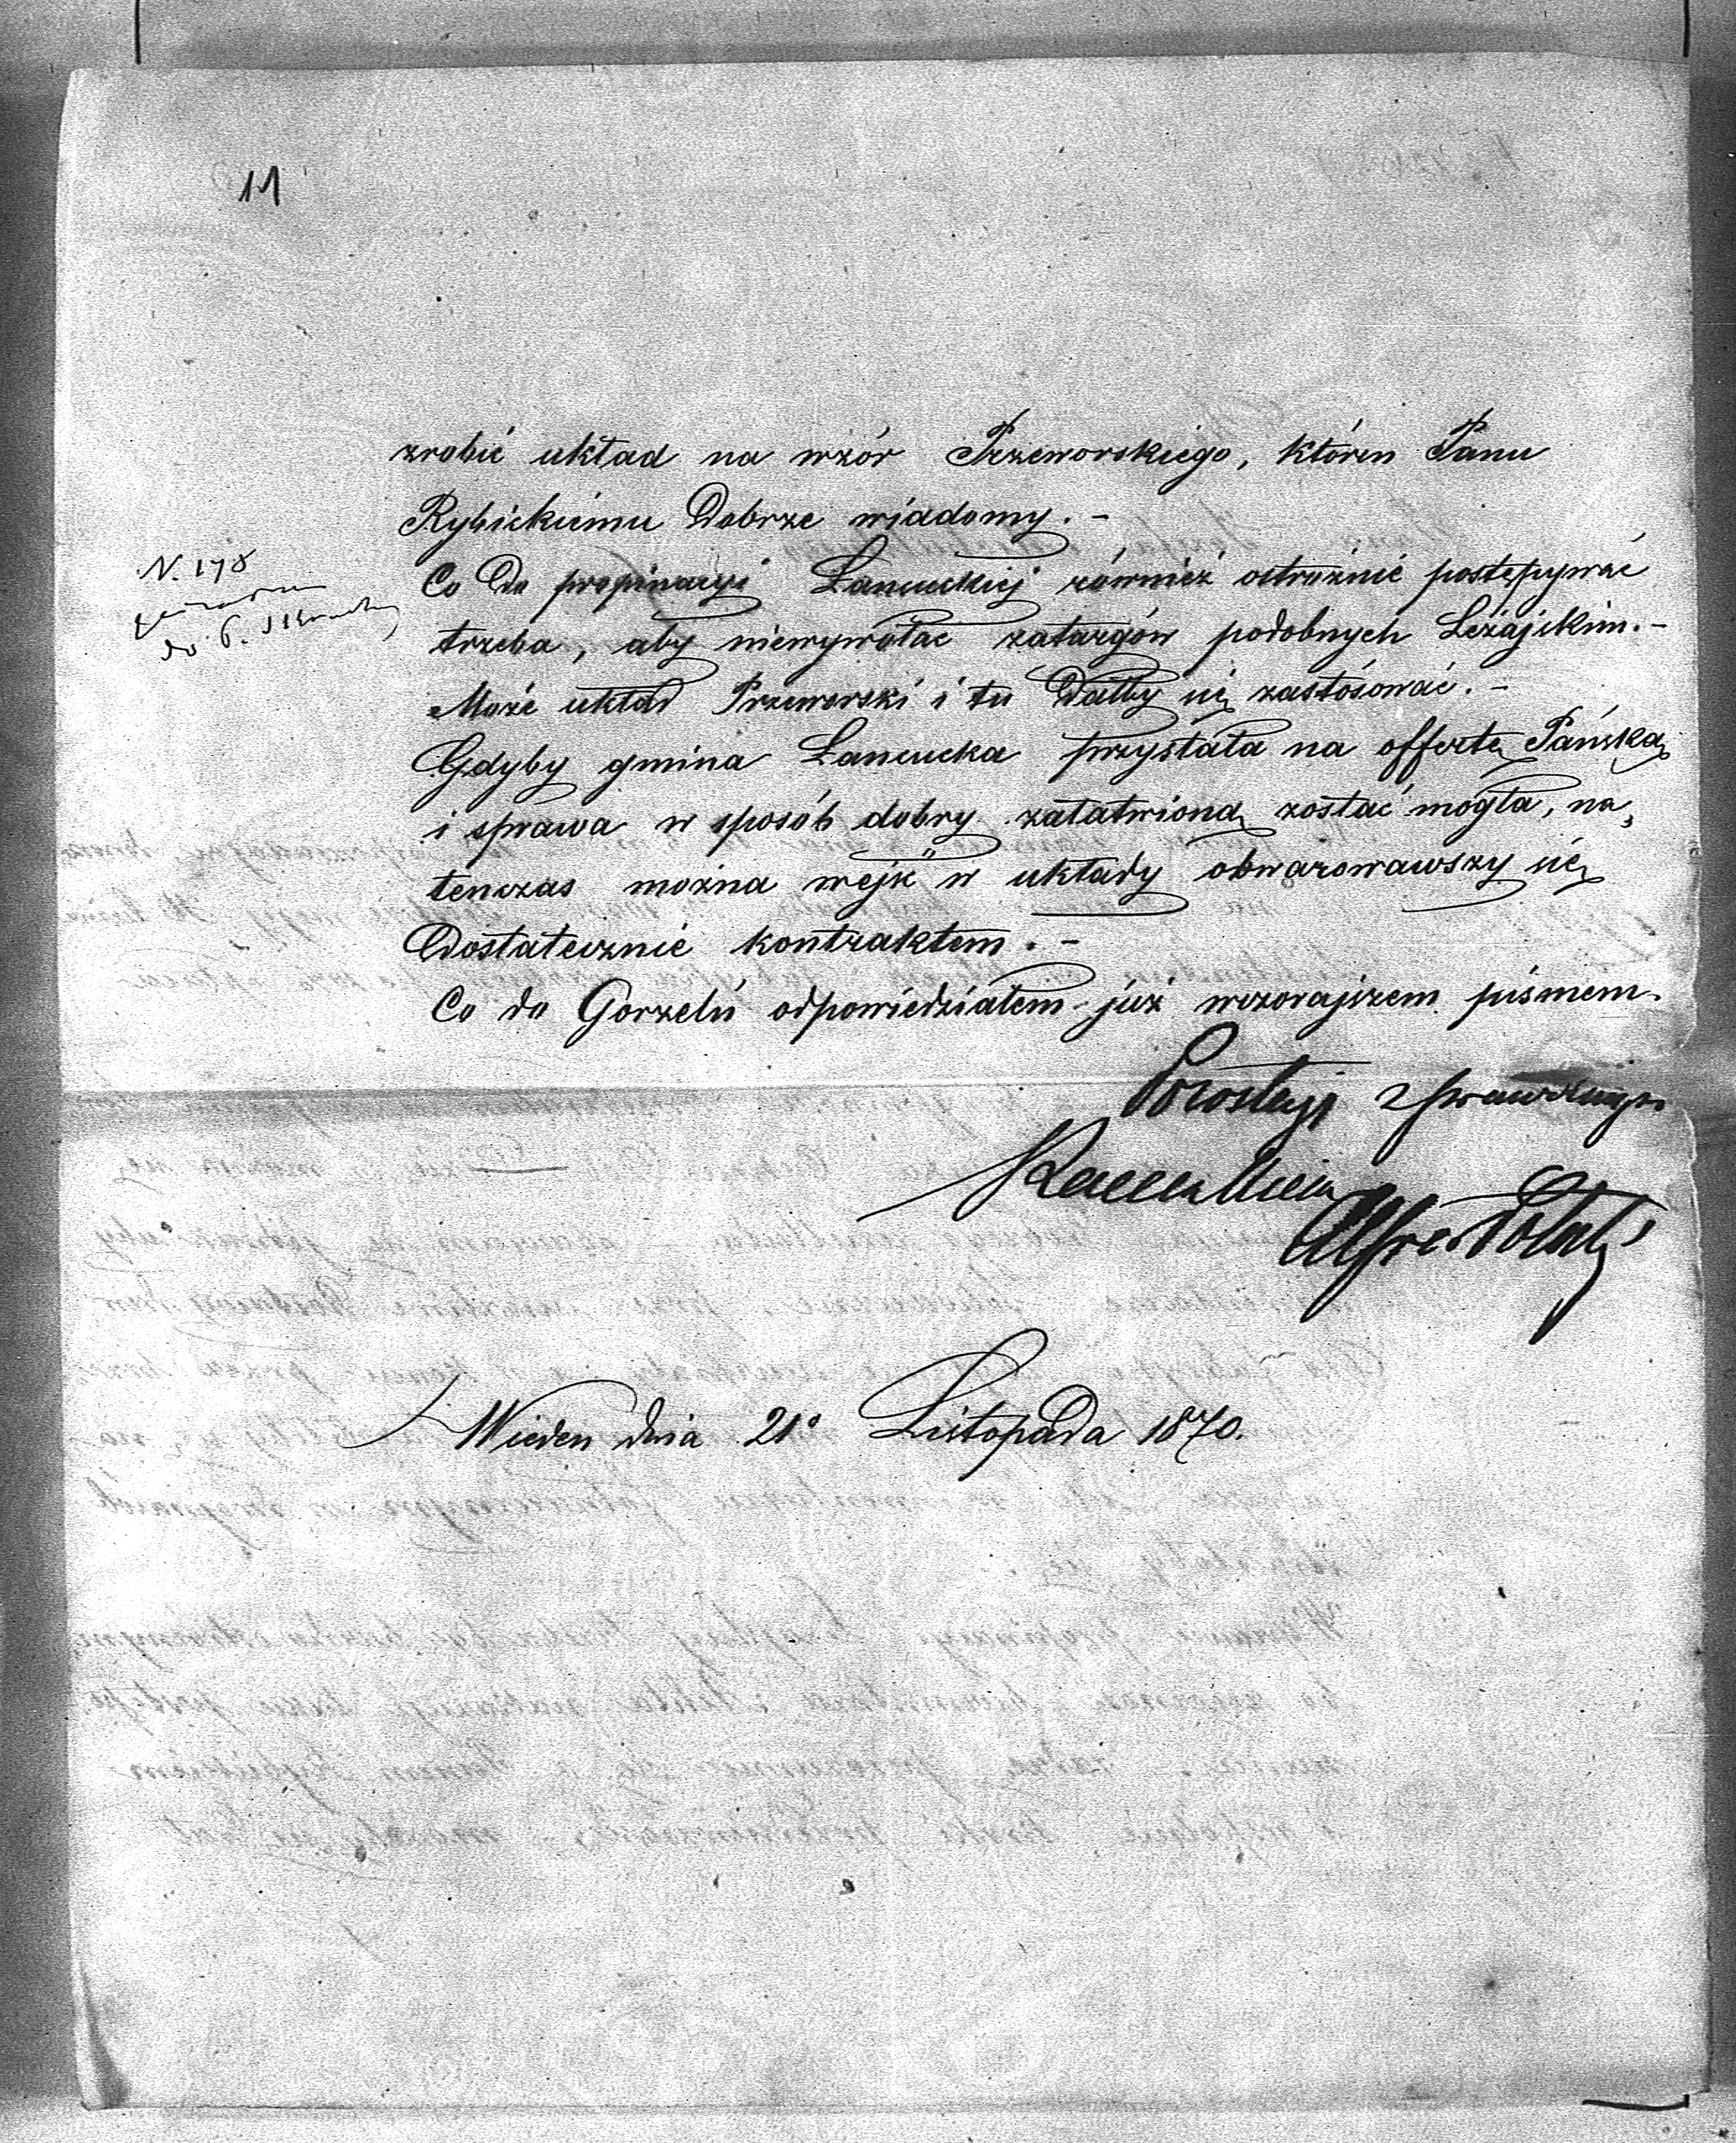 11
zrobić układ na wzór Przeworskiego, któren Panu
Rybickiemu dobrze wiadomy. -
N. 178
do P.
Co do propinacyi Łancuckiej również ostrożnie postępywać
trzeba, aby niewywołać zatargów podobnych Leżajskim. -
Może układ Przeworski i tu dałby się zastósować. -
Gdyby gmina Łancucka przystała na offertę Pańską
i sprawa w sposób dobry załatwioną zostać mogła, na„
tenczas można wejść w układy obwarowawszy się
dostatecznie kontraktem. -
Co do Gorzelń odpowiedziałem już wczorajszem pismem.
Pozostaję z prawdziwym
Szacunkiem
Alfred Potocki
Wieden dnia 21º Listopada 1870.